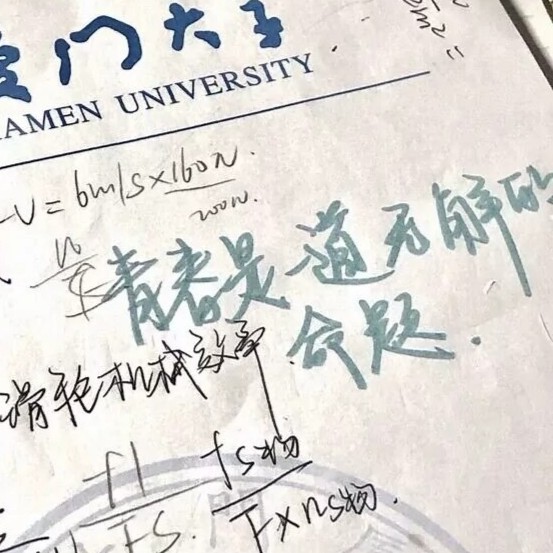 厦门大学
XIAMEN UNIVERSITY
m² =
V = 6m/s × 160N
200N.
青春是道无解的
命题.
滑轮机械效率
fl
Fs.
fs物
F×ns物.